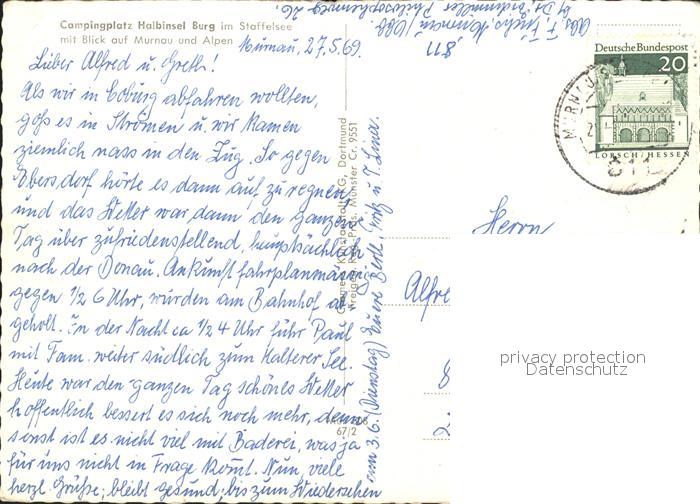 Campingplatz Halbinsel Burg im Staffelsee
mit Blick auf Murnau und Alpen
Murnau, 27.5.69.
Lieber Alfred u. Greth!
Als wir in Coburg abfahren wollten,
goß es in Strömen u. wir kamen
ziemlich nass in den Zug. So gegen
Ebersdorf hörte es dann auf zu regnen
und das Wetter war dann den ganzen
Tag über zufriedenstellend, hauptsächlich
nach der Donau. Ankunft fahrplanmässig
gegen 1/2 6 Uhr, wurden am Bahnhof ab-
geholt. In der Nacht ca 1/2 4 Uhr fuhr Paul
mit Fam. weiter südlich zum Kalterer See.
Heute war den ganzen Tag schönes Wetter
hoffentlich bessert es sich noch mehr, denn
sonst ist es nicht viel mit Baderei, was ja
für uns nicht in Frage komt. Nun, viele
herzl. Grüße, bleibt gesund; bis zum Wiedersehen
am 3.6. (Dienstag) Euere Berth, Fritz u. T. Lina.
Dortmund
Münster Cr. 7551
67/2
811
Deutsche Bundespost
20
LORSCH/HESSEN
MURNAU
811
Herrn
Alfre
privacy protection
Datenschutz